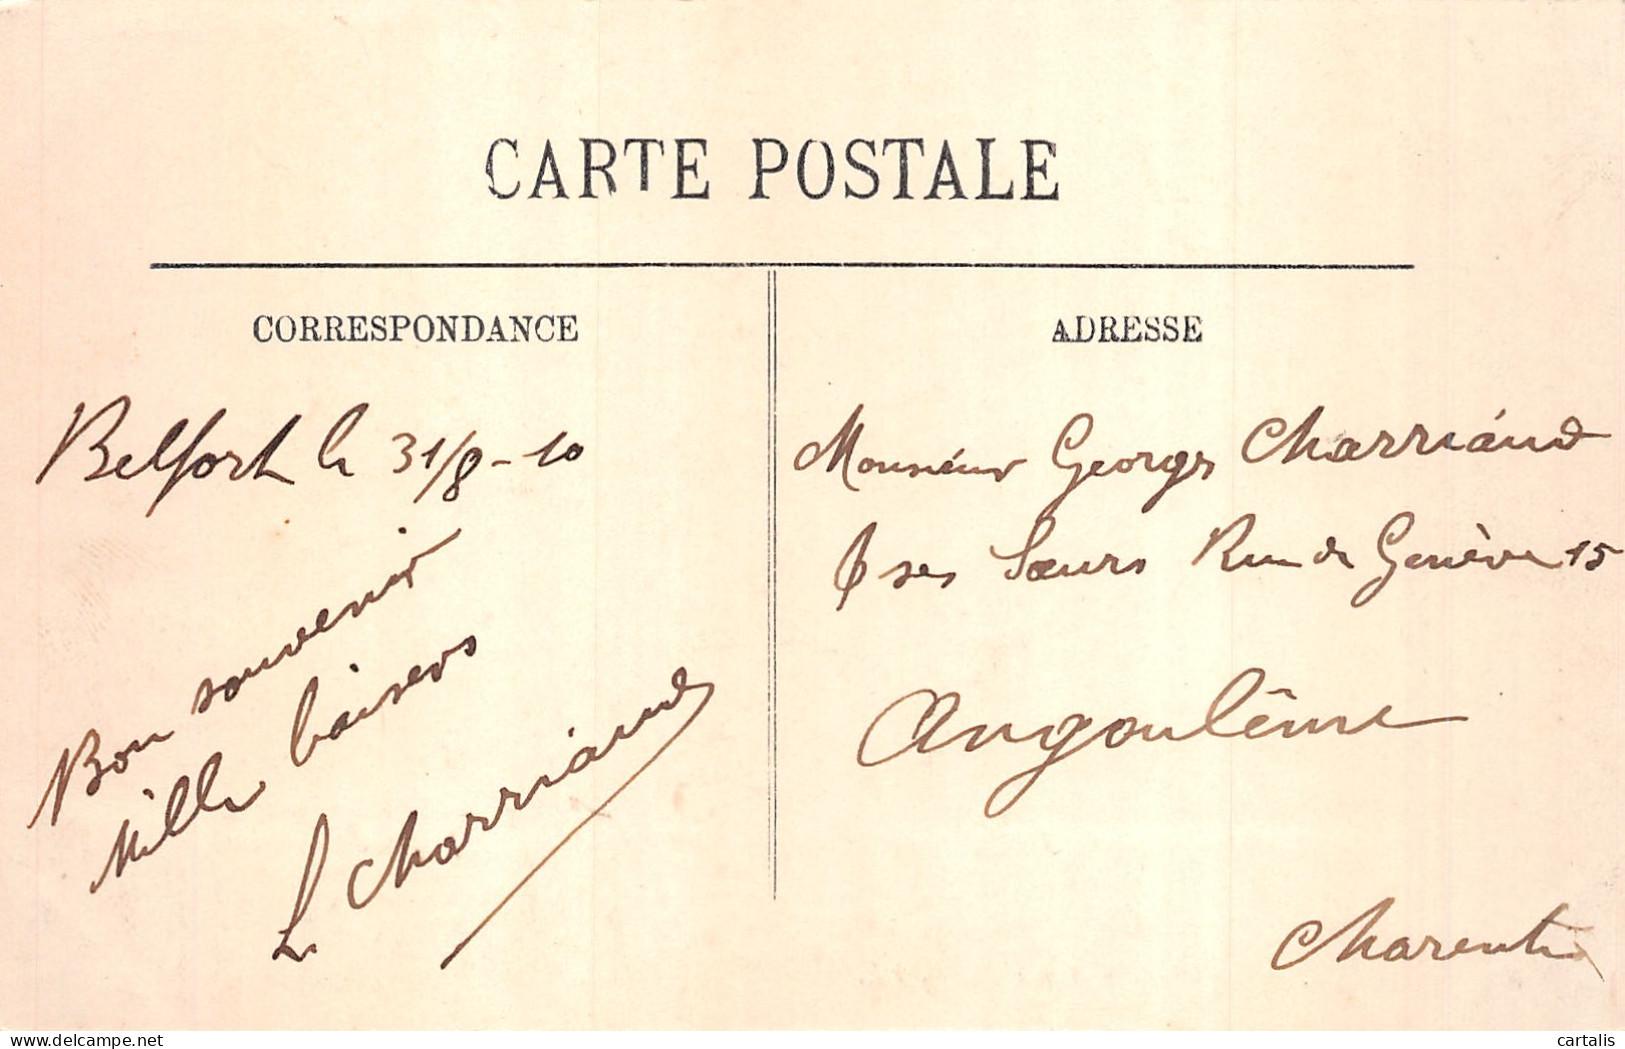 CARTE POSTALE
CORRESPONDANCE
Belfort le 31/8-10
Bon souvenir
Mille baisers
L Charriaud
ADRESSE
Monsieur Georges Charriaud
& ses Sœurs Rue de Genève 15
Angoulême
Charente
delcampe.net
cartalis